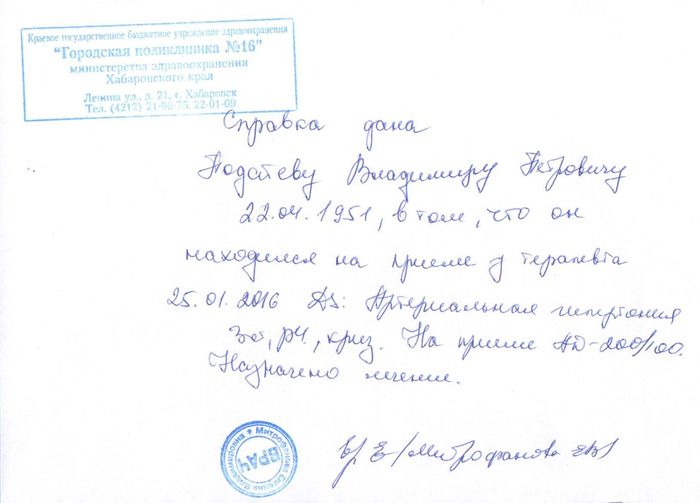 Краевое государственное бюджетное учреждение здравоохранения
"Городская поликлиника №16"
министерства здравоохранения
Хабаровского края
Ленина ул., д. 21, г. Хабаровск
Тел. (4212) 21-96-75, 22-01-09
Справка дана
Владимиру Петровичу
22.04.1951, в том, что он
находился на приеме у терапевта
25.01.2016 Ds: Артериальная гипертония
3 ст, р4, криз. На приеме АД-200/100.
Назначено лечение.
Митрофанова Евгения Владимировна
ВРАЧ
Митрофанова ЕВ